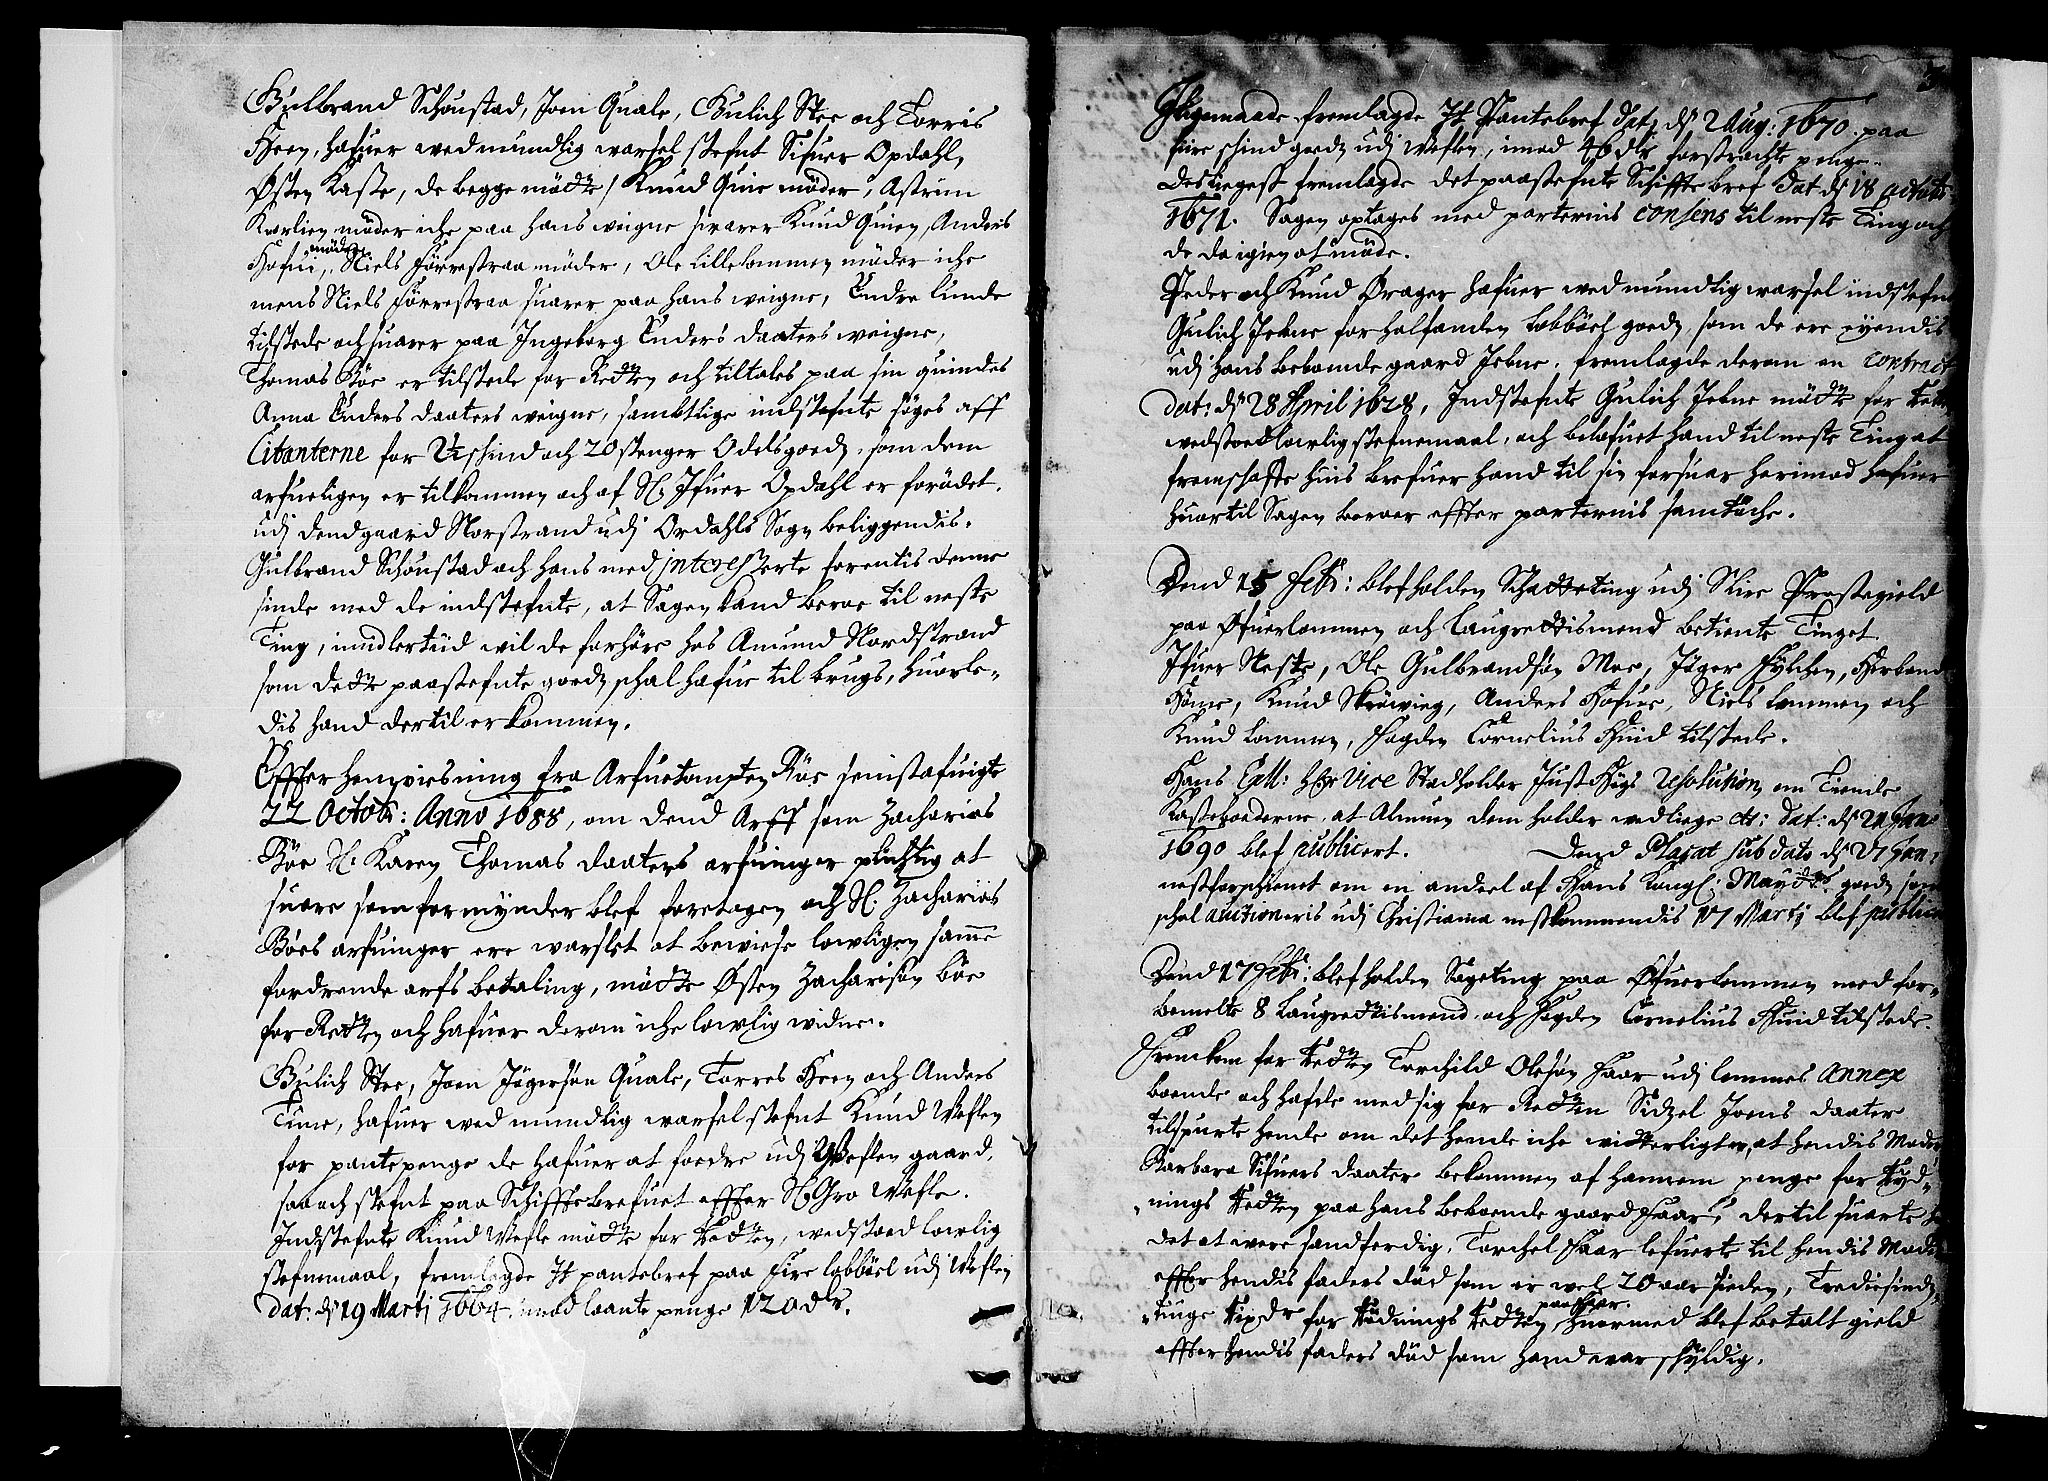 Gulbrand Schoustad, Joen Quale, Gulich Stee och Torris
Heen, hafuer wed mundlig warsel stefnt Sifuer Opdahl,
Østen Kasse, de begge mødte / Knud Quie møder, Astrim
Quarlien møder iche paa hans weigne swarer Knud Quien, Anders
Hofui møder, Niels Førrestraa møder, Ole Lillelommen møder iche
mens Niels Førrestraa suarer paa hans weigne, Endre Lunde
tilstede och suarer paa Ingeborg Enders daaters weigne,
Thomas Bøe er tilstede for Retten och tiltales paa sin quindes
Anna Enders daaters weigne, samtlige indstefnte søges aff
Citanterne for 1/2 schind och 20 stenger Odelsgoeds, som dem
arfueligen er tilkommen och af S. Ifuer Opdahl er forødet,
udj dend gaard Norstrand udj Ordahls Sogn beliggendis.
Gulbrand Schoustad och hans med interesserte forentis denne
sinde med de indstefnte, at Sagen kand beroe til neste
Ting, imidlertiid wil de forhøre hos Amund Nordstrand
som dette paastefnte goeds schal hafue til brugs, huorle-
dis hand dertil er kommen.
Effter henwisning fra Arfuetompten Bøe senist afuigte
22 Octobr: Anno 1688, om dend Arff som Zacharias
Bøe S. Karen Thomas daaters arfuinger plichtig at
suare som formynder blef foretagen och S. Zacharias
Bøes arfuinger ere warslet at bewise lowligen samme
fordrende arfs betaling, mødte Østen Zacharisøn Bøe
for Retten och hafuer derom iche lowlig widne.
Gulich Stee, Joen Jøgersøn Quale, Torres Heen och Anders
Tune, hafuer wed mundlig warsel stefnt Knud Weflen
for pantepenge de hafuer at fordre udj Weflen gaard,
saa och stefnt paa Schifftebrefuet effter S. Gro Wefle.
Indstefnte Knud Wefle mødte for Retten, wedstoed lowlig
stefnemaal, fremlagde It pantebref paa fire løbbøel udj Weflen
dat: ds 19 Martj 1664, imod laante penge 120 dlr.
Iligemaade fremlagde It Pantebref dat: ds 2 Aug: 1670. paa
fiire schind goeds udj Weflen, imod 46 dlr forstrachte penge.
Desligest fremlagde det paastefnte Schifftebref dat. ds 18 octobr
1671. Sagen optages med parternis consens til neste Ting och
de da igien at møde.
Peder och Knud Brager hafuer wed mundlig warsel indstefnt
Gulich Jebne for halfanden løbbøel goeds, som de ere eyendis
udj hans beboende gaard Jebne. fremlagde derom en contract
dat: ds 28 April 1628, Indstefnte Gulich Jebne mødte for Retten
wedstoed lowlig stefnemaal, och belofuet hand til neste Ting at
fremschaffe huis brefuer hand til sin forsuar herimod hafuer
huortil Sagen beroer effter parternis samtøche.
Dend 15 Febr: blef holden Schatteting udj Slire Prestegield
paa Øfuerlommen och Laugrettismend betiente Tinget
Ifuer Neste, Ole Gulbrandsøn Moe, Jøger Fylchen, Herbrand
Høme, Knud Skrøwieg, Anders Hofue, Niels Lommen och
Knud Lommen, Fogden Cornelius Huid tilstede.
Hans Exell: Hr Vice Stadholder Just Høgs resolution om Tiende
Kasteboederne, at Almuen dem holder wedlige etc: dat: ds 24 Jan:
1690 blef publicert. Dend Placat sub dato ds 27 Jan:
nestforschienet om en andeel af Hans Kongl: Mayets. goeds som
schal auctioneris udj Christiania nestkommendis 17 Martj blef public
Dend 17 Febr: blef holden Sageting paa Øfuerlommen med for-
bemelte 8 Laugrettismend, och Fogden Cornelius Huid tilstede.
Fremkom for Retten Torchild Olesøn Haar udj Lommes Annex
boende och hafde med sig for Retten Sidzel Joens daater
tilspurte hende om det hende iche witterligt er, at hendis Moder
Barbara Sifuers daater bekommen af hannem penge for Byd-
nings Retten paa hans beboende gaard Haar, dertil suarte
det at were sandferdig. Torchel Haar lefuerte til hendis Moder
effter hendis faders død som er wel 20 aar siden, Trediesinds
tiuge rixdr for Bødnings Retten paa Haar. huormed blef betalt gield
effter hendis faders død som hand war schyldig.